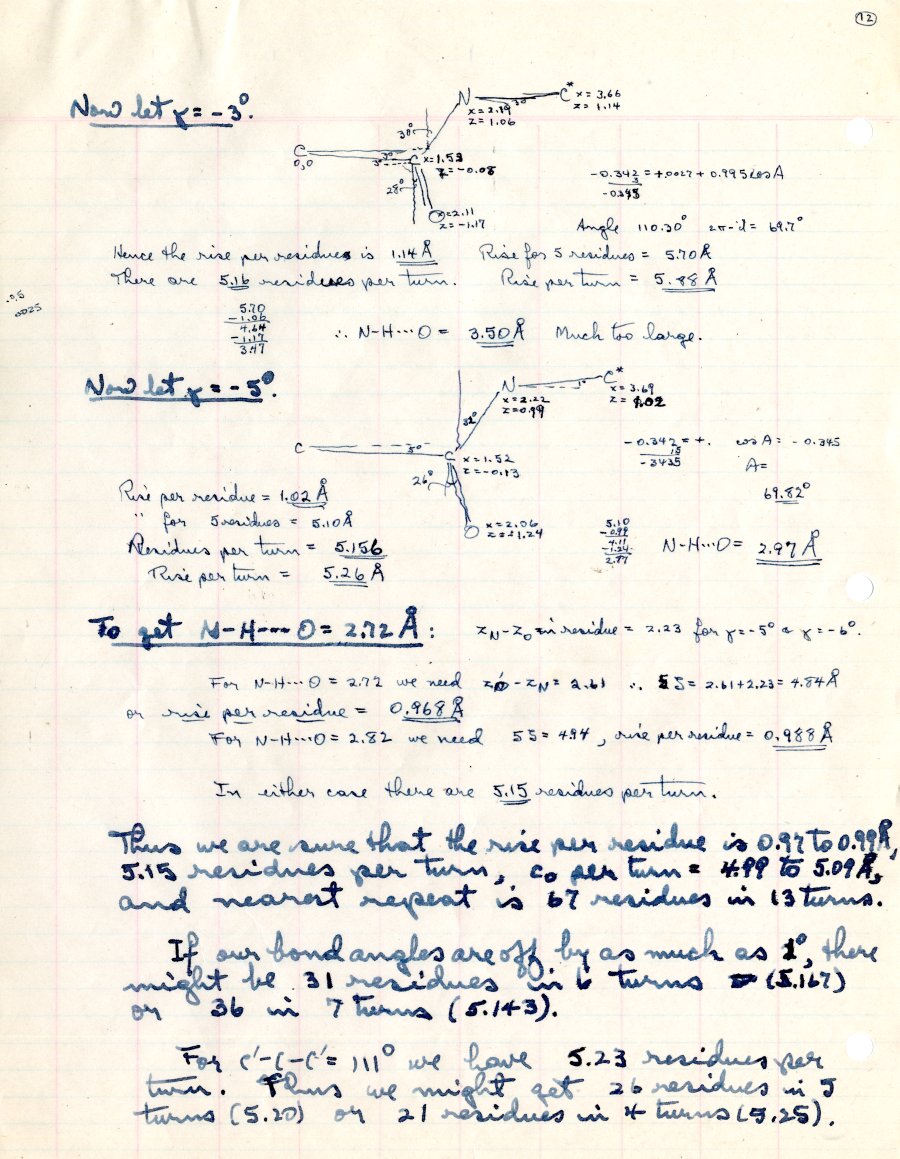 12
Now let γ = -3°.
N
x = 2.19
z = 1.06
3°
C* x = 3.66
z = 1.14
30°
C
0,0
3°
C x = 1.53
z = -0.08
28°
O x = 2.11
z = -1.17
-0.342 = +.0027 + 0.995 cos A
3
-0.345
Angle 110.30° 2π-d = 69.7°
Hence the rise per residue is 1.14 Å Rise for 5 residues = 5.70 Å
There are 5.16 residues per turn. Rise per turn = 5.88 Å
.05
.0025
5.70
-1.06
4.64
-1.17
3.47
∴ N-H···O = 3.50 Å Much too large.
Now let γ = -5°.
N
x = 2.22
z = 0.99
5°
C*
x = 3.69
z = 1.02
32°
C
5°
C x = 1.52
z = -0.13
26°
O x = 2.06
z = -1.24
-0.342 = +. cos A = -0.345
15
-3435
A =
69.82°
Rise per residue = 1.02 Å
" for 5 residues = 5.10 Å
Residues per turn = 5.156
Rise per turn = 5.26 Å
5.10
-0.99
4.11
-1.24
2.87
N-H···O = 2.97 Å
To get N-H---O = 2.72 Å:
zN-zO in residue = 2.23 for γ = -5° & γ = -6°.
For N-H···O = 2.72 we need zO'-zN = 2.61 ∴ 5S = 2.61+2.23 = 4.84 Å
or rise per residue = 0.968 Å
For N-H···O = 2.82 we need 5S = 494, rise per residue = 0.988 Å
In either case there are 5.15 residues per turn.
Thus we are sure that the rise per residue is 0.97 to 0.99 Å,
5.15 residues per turn, c₀ per turn = 4.99 to 5.09 Å,
and nearest repeat is 67 residues in 13 turns.
If our bond angles are off by as much as 1°, there
might be 31 residues in 6 turns (5.167)
or 36 in 7 turns (5.143).
For C'-C-C' = 111° we have 5.23 residues per
turn. Thus we might get 26 residues in 5
turns (5.20) or 21 residues in 4 turns (5.25).